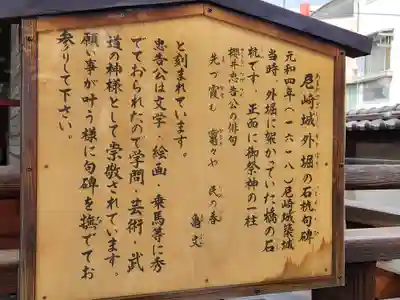 尼崎城外堀の石杭句碑
元和四年(一六一八)尼崎城築城
当時、外堀に架かっていた橋の石
杭です。正面に御祭神の一柱
櫻井忠告公の俳句
先づ霞も 竈々や 民の春
亀文
と刻まれています。
忠告公は文学・絵画・乗馬等に秀
でておられたので学問・芸術・武
道の神様として崇敬されています。
願い事が叶う様に句碑を撫でてお
参りして下さい。